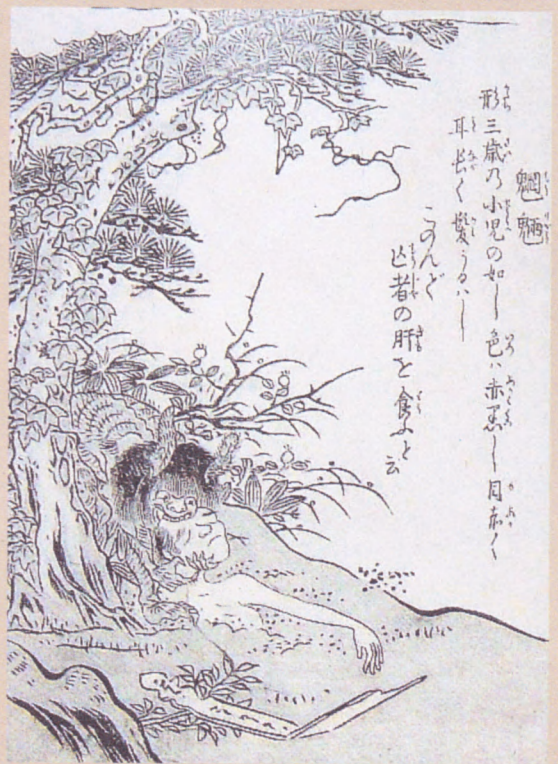 魍魎
形三歳乃小児の如し色ハ赤黒し目赤く
耳長く髪うるハし
このんで
亡者の肝を食ふと云